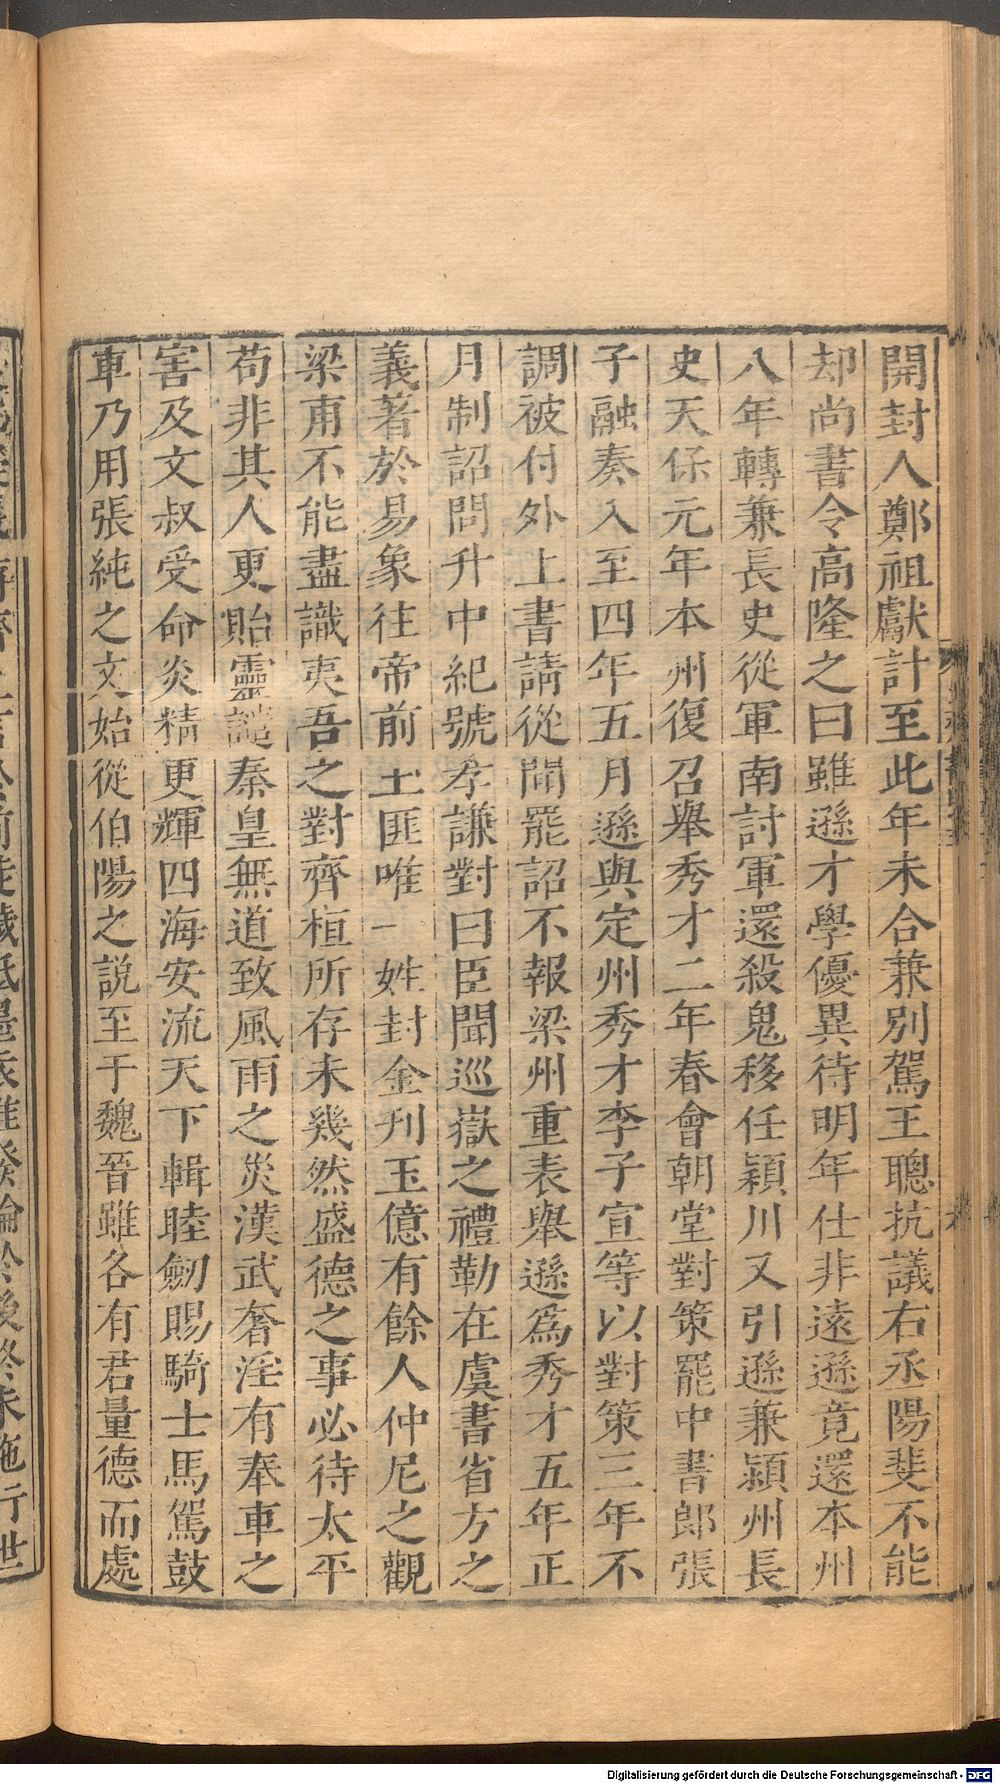 開封人鄭祖獻計至此年未合兼別駕王聰抗議右丞陽斐不能
却尚書令高隆之曰雖遜才學優異待明年仕非遠遜竟還本州
八年轉兼長史從軍南討軍還殺鬼移任潁川又引遜兼潁州長
史天保元年本州復召舉秀才二年春會朝堂對策罷中書郎張
子融奏入至四年五月遜與定州秀才李子宣等以對策三年不
調被付外上書請從聞罷詔不報梁州重表舉遜爲秀才五年正
月制詔問升中紀號孝謙對曰臣聞巡嶽之禮勒在虞書省方之
義著於易象往帝前王匪唯一姓封金刊玉億有餘人仲尼之觀
梁甫不能盡識夷吾之對齊桓所存未幾然盛德之事必待太平
苟非其人更貽靈譴秦皇無道致風雨之災漢武奢淫有奉車之
害及文叔受命炎精更輝四海安流天下輯睦劒賜騎士馬駕鼓
車乃用張純之文始從伯陽之説至于魏晉雖各有君量德而處
Digitalisierung gefördert durch die Deutsche Forschungsgemeinschaft - DFG